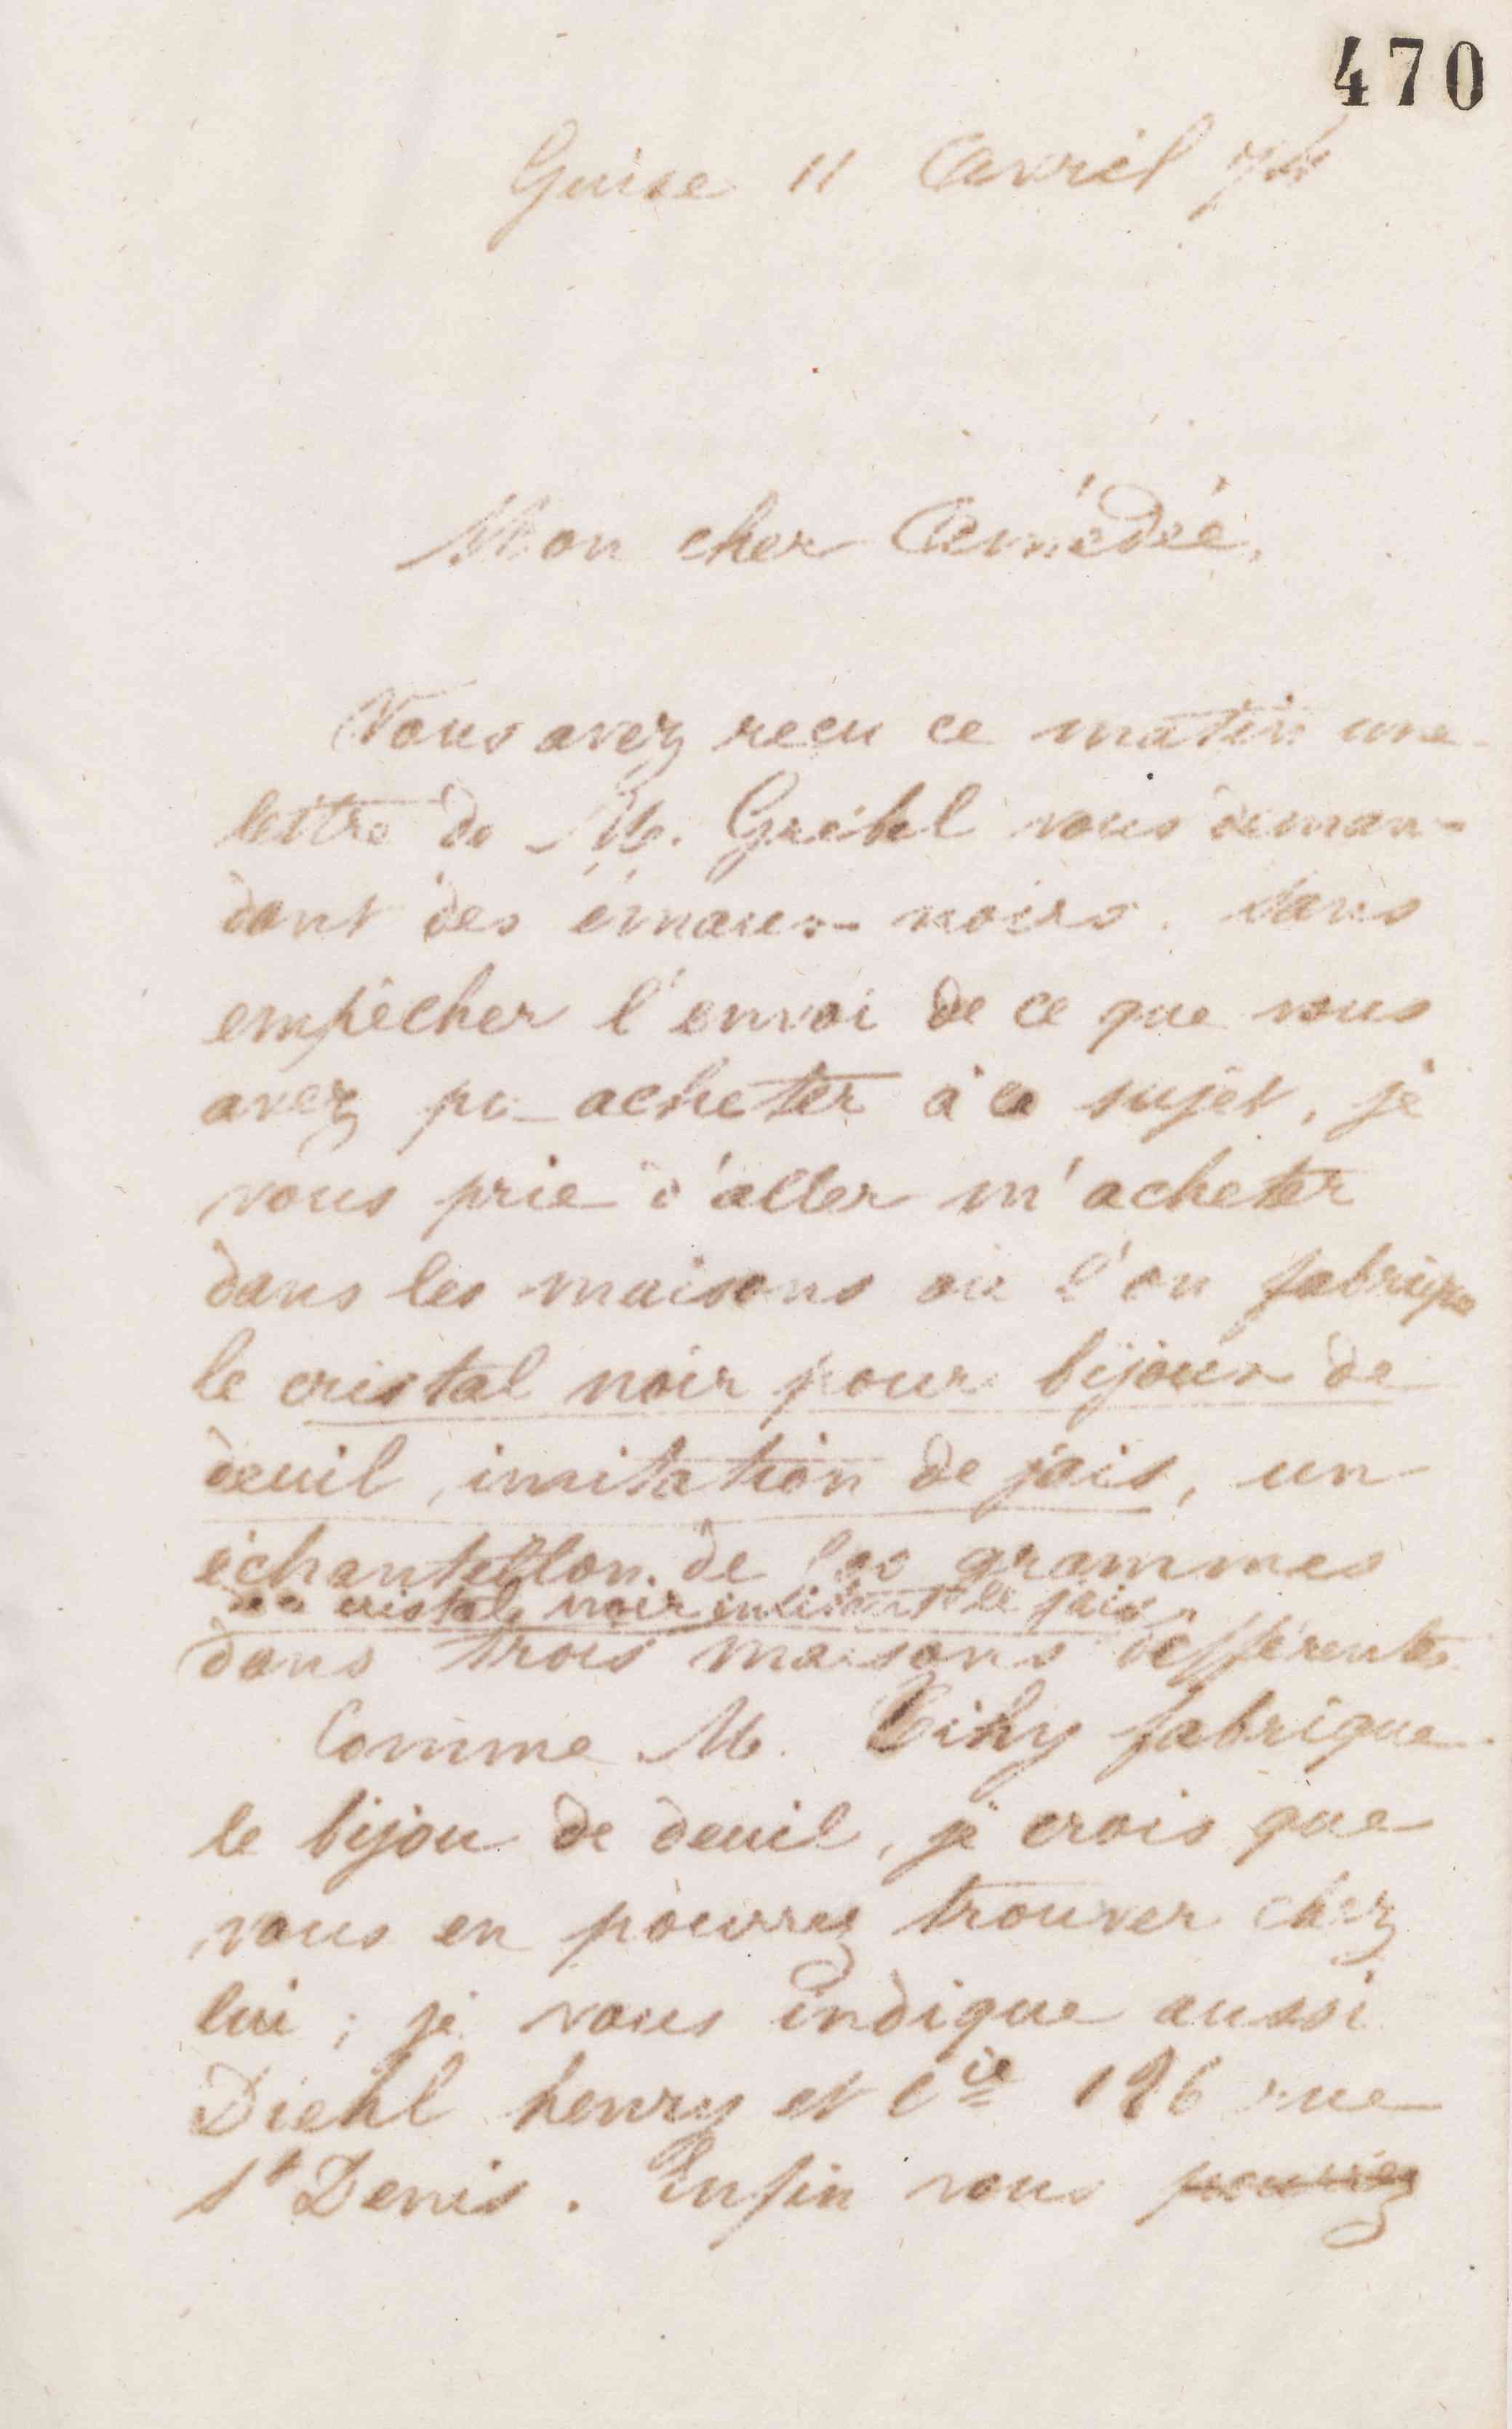 470
Guise 11 avril 74
Mon cher Amédée,
Vous avez reçu ce matin une
lettre de M. Grebel vous deman-
dant des émaux noirs. Sans
empêcher l'envoi de ce que vous
avez pu acheter à ce sujet, je
vous prie d'aller m'acheter
dans les maisons où l'on fabrique
le cristal noir pour bijoux de
deuil, imitation de jais, un
échantillon de 100 grammes
de cristal noir imitant le jais
dans trois maisons différentes
Comme M. fabrique
le bijou de deuil, je crois que
vous en pourrez trouver chez
lui ; je vous indique aussi
Diehl henry et Cie 196 rue
St Denis. Enfin vous pourriez